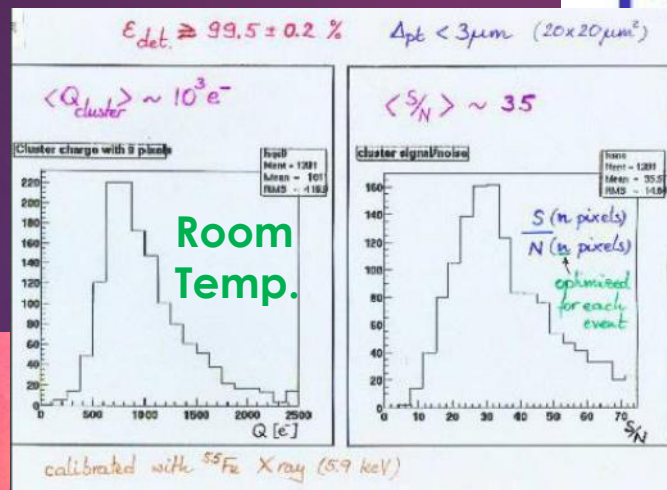 ε det. ≳ 99.5 ± 0.2 %
Δpt < 3μm (20x20μm²)
<Q cluster> ~ 10³ e⁻
<S/N> ~ 35
Cluster charge with 9 pixels
Nent = 1201
Mean =
RMS =
220
200
180
160
140
120
100
80
60
40
20
0
0 500 1000 1500 2000 2500
Q [e⁻]
Room
Temp.
cluster signal/noise
Nent = 1201
Mean = 35.5
RMS = 14.6
160
140
120
100
80
60
40
20
0
0 10 20 30 40 50 60 70
S/N
S (n pixels)
N (n pixels)
optimized
for each
event
calibrated with ⁵⁵Fe X ray (5.9 keV)